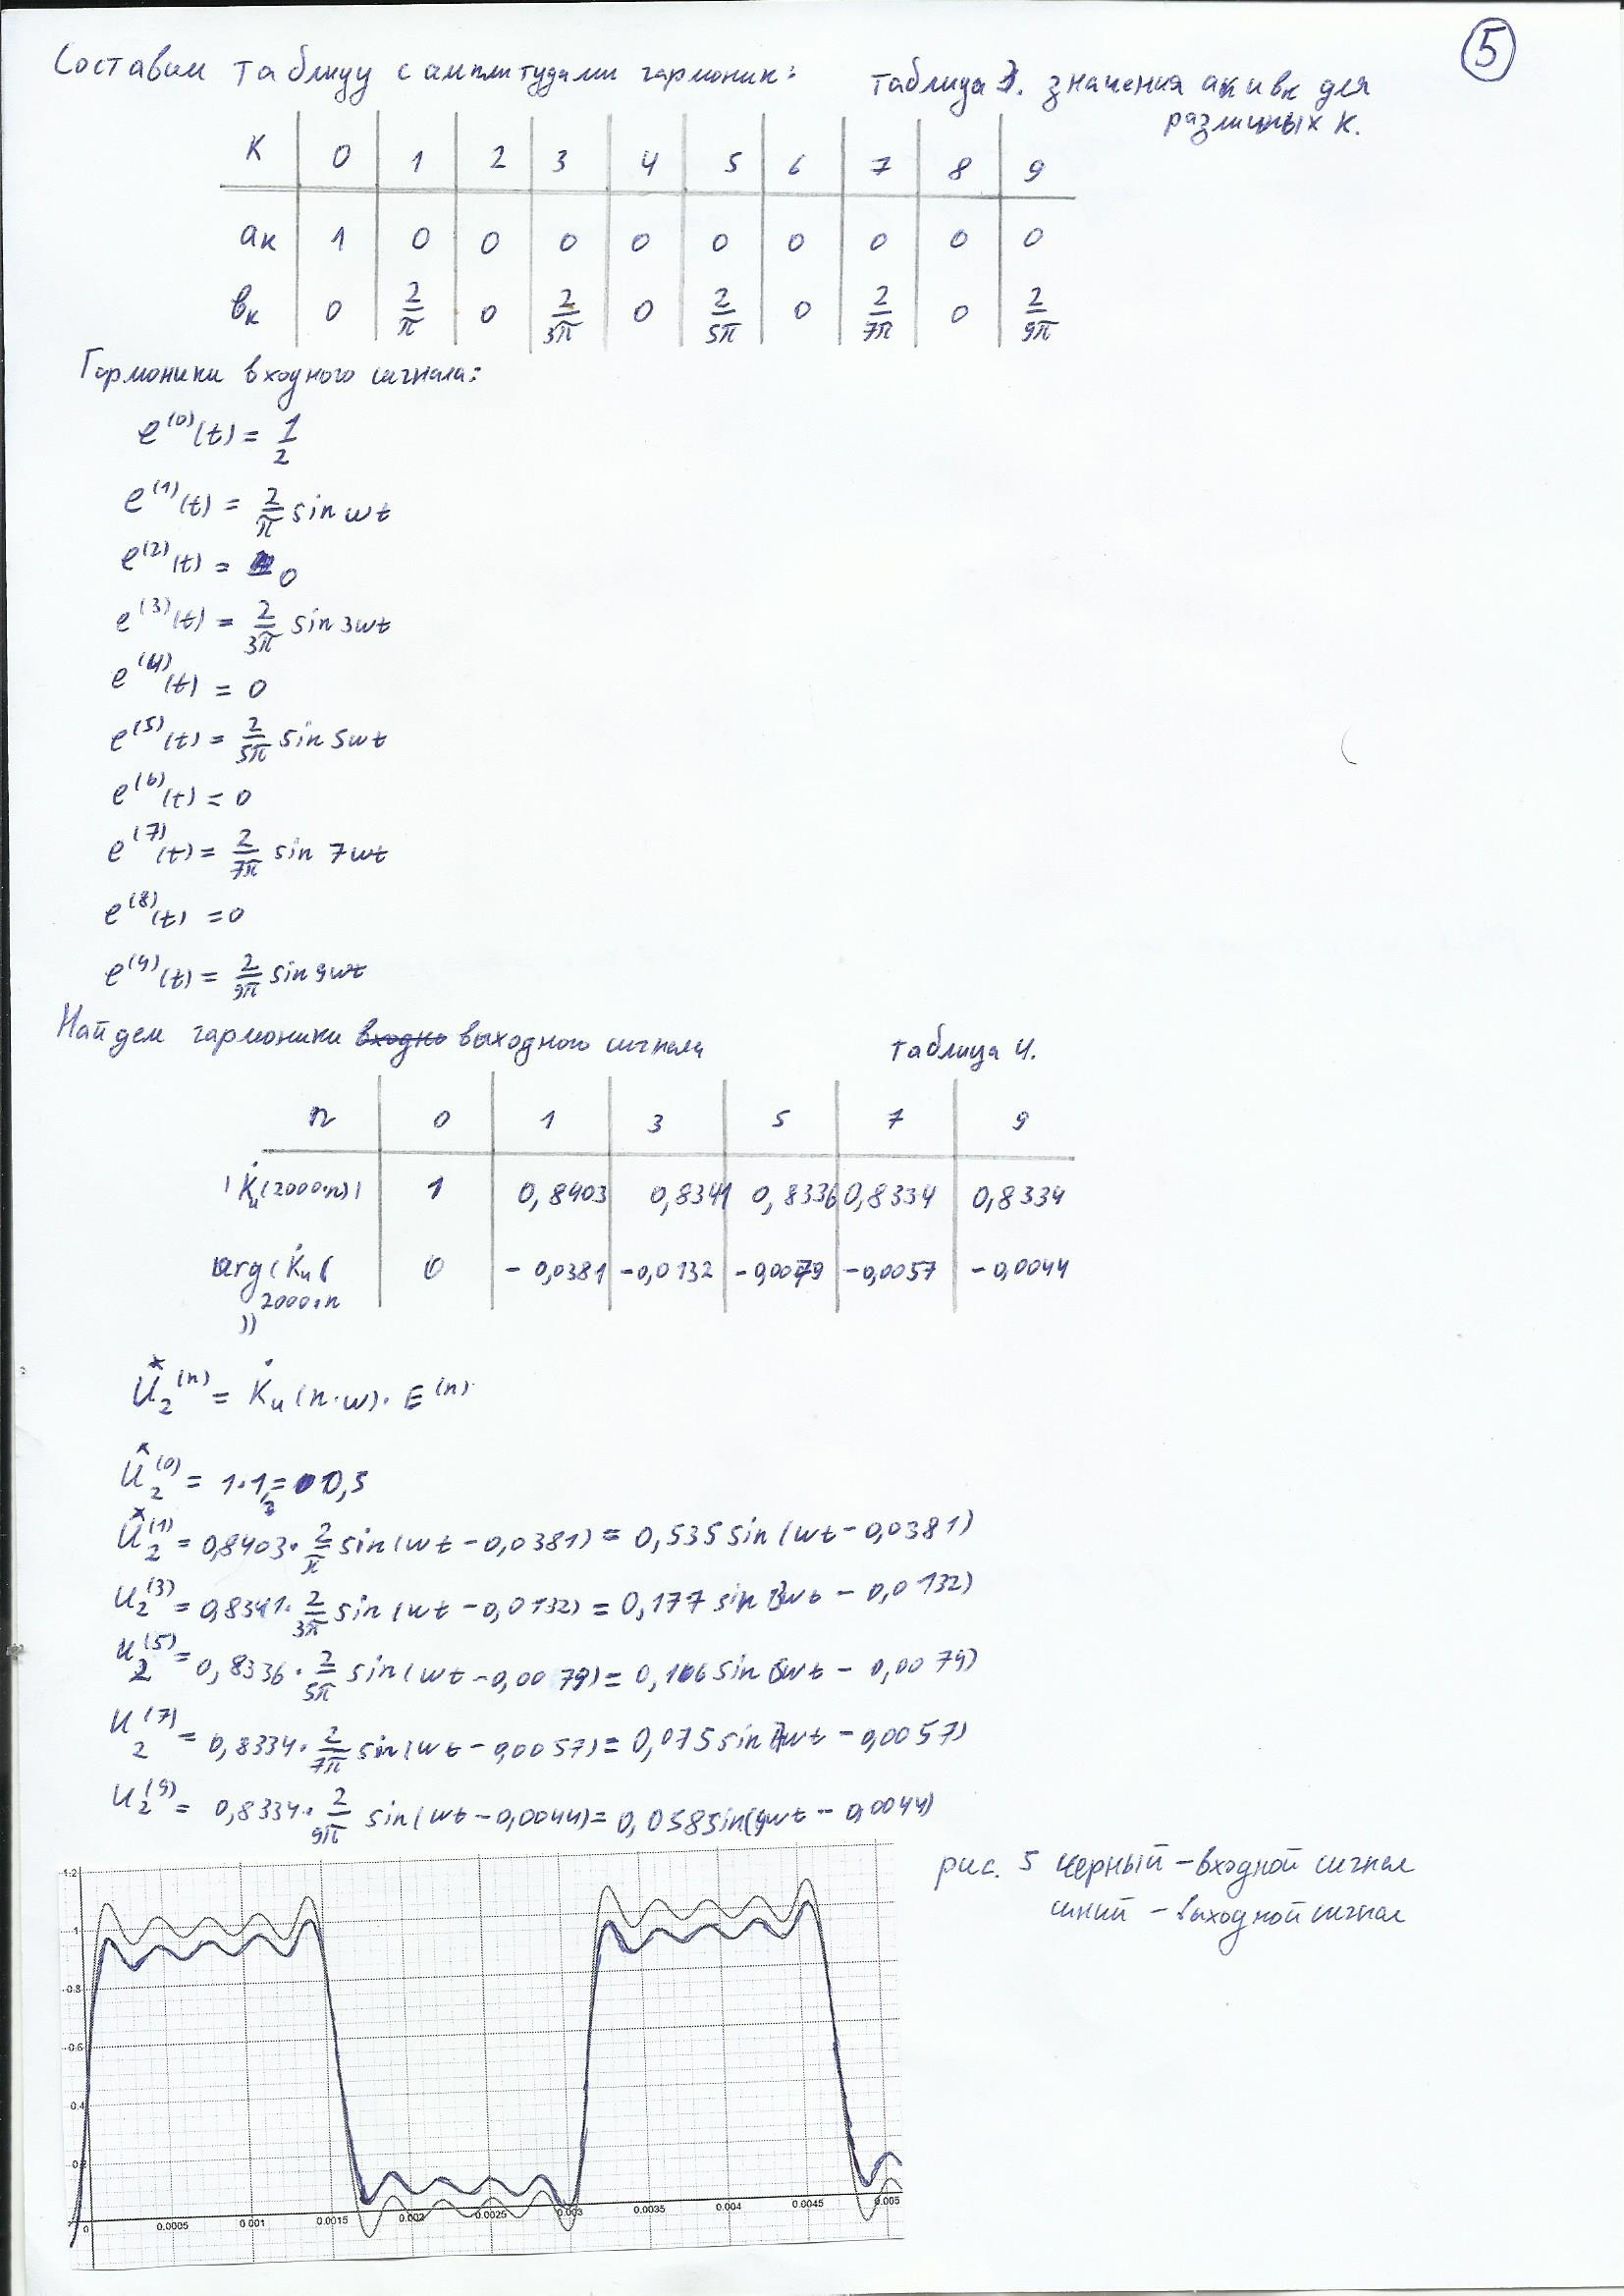 5
Составим таблицу с амплитудами гармоник:
таблица 3. значения aк и вк для
различных к.
К 0 1 2 3 4 5 6 7 8 9
aк 1 0 0 0 0 0 0 0 0 0
вк 0 2/π 0 2/3π 0 2/5π 0 2/7π 0 2/9π
Гармоники входного сигнала:
e^(0)(t) = 1/2
e^(1)(t) = 2/π sin wt
e^(2)(t) = 0
e^(3)(t) = 2/3π sin 3wt
e^(4)(t) = 0
e^(5)(t) = 2/5π sin 5wt
e^(6)(t) = 0
e^(7)(t) = 2/7π sin 7wt
e^(8)(t) = 0
e^(9)(t) = 2/9π sin 9wt
Найдем гармоники входно выходного сигнала
таблица 4.
n 0 1 3 5 7 9
|K̇u(2000·n)| 1 0,8403 0,8341 0,8336 0,8334 0,8334
arg(K̇u( 0 -0,0381 -0,0132 -0,0079 -0,0057 -0,0044
2000·n
))
U₂^(n) = K̇u(n·w)·E^(n)
U₂^(0) = 1·1/2 = 0,5
U₂^(1) = 0,8403·2/π sin(wt - 0,0381) = 0,535 sin(wt - 0,0381)
U₂^(3) = 0,8341·2/3π sin(wt - 0,0132) = 0,177 sin(3wt - 0,0132)
U₂^(5) = 0,8336·2/5π sin(wt - 0,0079) = 0,106 sin(5wt - 0,0079)
U₂^(7) = 0,8334·2/7π sin(wt - 0,0057) = 0,075 sin(7wt - 0,0057)
U₂^(9) = 0,8334·2/9π sin(wt - 0,0044) = 0,058 sin(9wt - 0,0044)
рис. 5 черный - входной сигнал
синий - выходной сигнал
1.2
1
0.8
0.6
0.4
0.2
0 0.0005 0.001 0.0015 0.002 0.0025 0.003 0.0035 0.004 0.0045 0.005